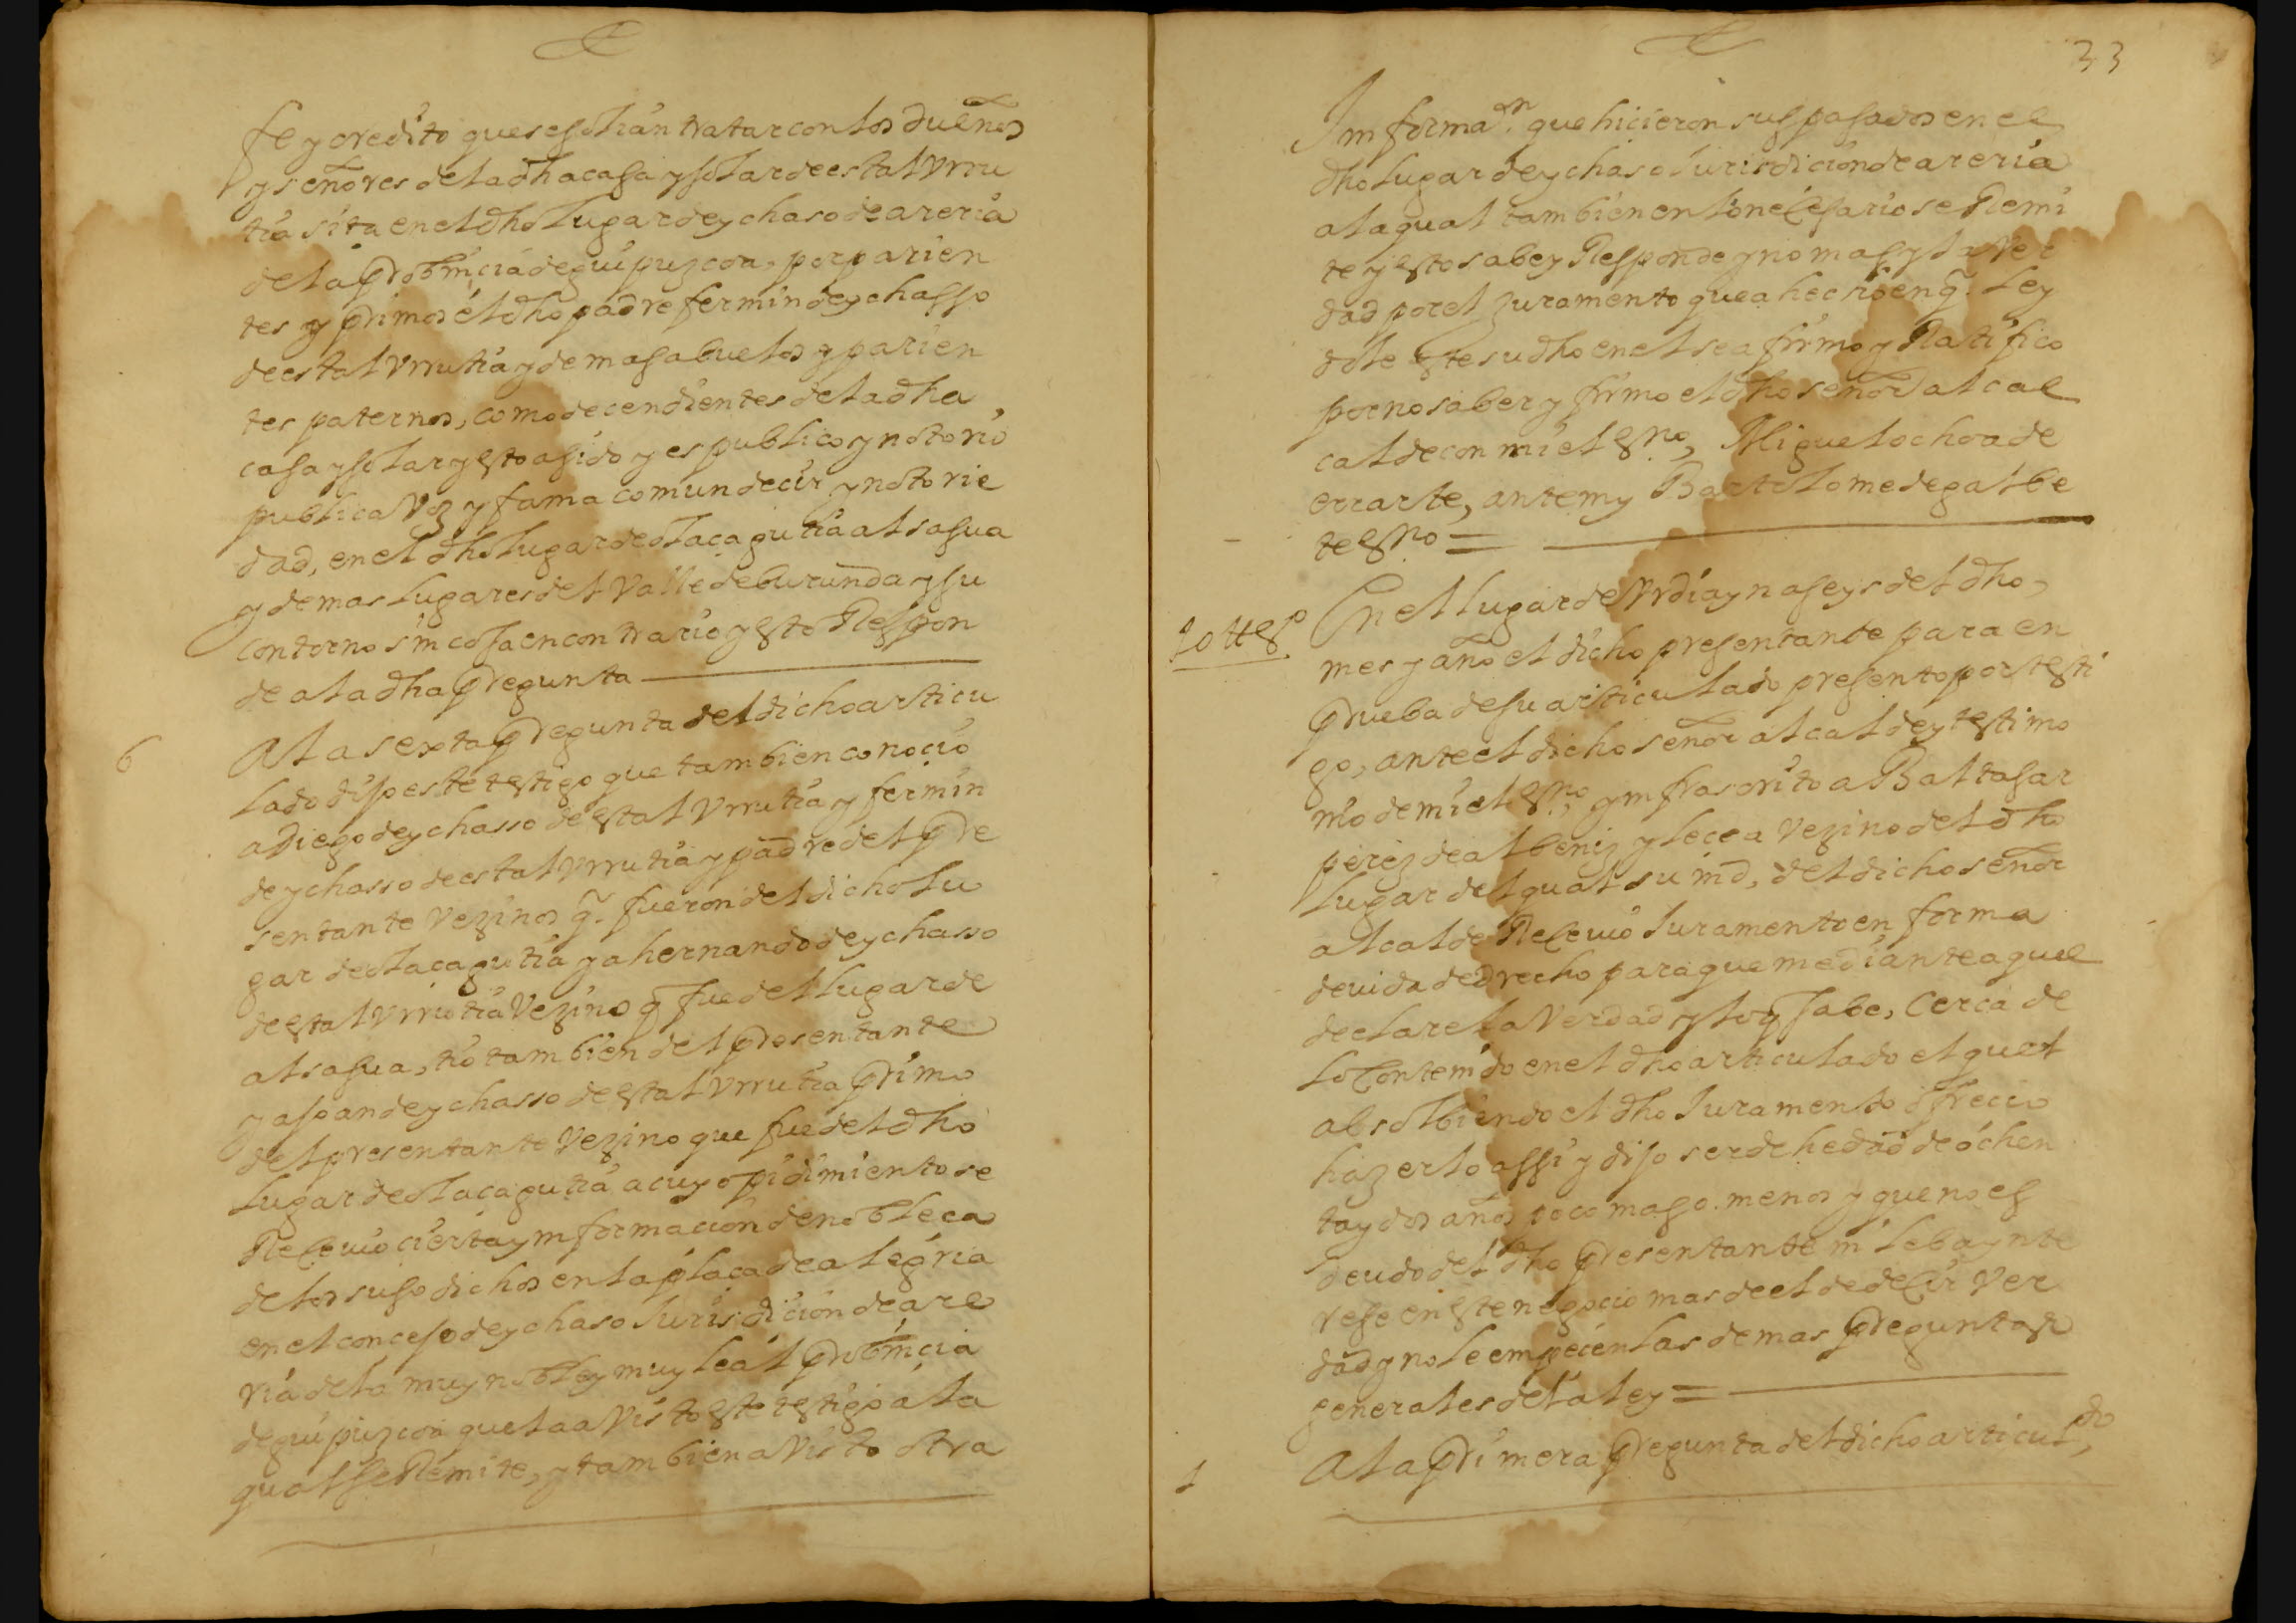 fe y credito que se solian tratar con los dueños
y señores de la dha casa y solar de estal Vrru
tia sita en el dho lugar de ychaso de areria
de la Probinçia de guipuzcoa, por parien
tes y primos el dho padre fermin de ychasso
de estal Vrrutia y demas abuelos y parien
tes paternos, como decendientes de la dha
casa y solar y esto a sido y es publico y notorio
publica Voz y fama comun decir y notorie
dad, en el dho lugar de olaçagutia alsasua
y demas lugares del Valle de burunda y su
contorno sin cosa en contrario y esto Respon
de a la dha Pregunta
6 A la sexta Pregunta del dicho articu
lado dijo este testigo que tambien conocio
a Diego de ychasso de estal Vrrutia y fermin
de ychasso de estal Vrrutia y padre del Pre
sentante Vezinos q̃. fueron del dicho lu
gar de olaçagutia y a hernando de ychasso
de estal Vrrutia Vezino q̃ fue del lugar de
alsasua, tio tambien del Presentante
y a Joan de ychasso de estal Vrrutia Primo
del presentante Vezino que fue del dho
lugar de olaçagutia a cuyo pidimiento se
Reçeuio cierta ynformacion de nobleça
de los suso dichos en la plaça de alegria
en el concejo de ychaso Jurisdicion de are
ria de la muy noble y muy leal Probinçia
de guipuzcoa que la a Visto este testigo a la
qual se Remite, y tambien a Visto otra
33
Informaon. que hicieron sus pasados en el
dho lugar de ychaso Jurisdicion de areria
a la qual tambien en lo neçesario se Remi
te y esto sabe y Responde y no mas y la Ver
dad por el Juramento que a hecho en q̃. ley
dole este su dho en el se afirmo y Ratifico
por no saber y firmo el dho señor alcal
calde con mi el essno, Miguel ochoa de
erarte, ante my Bartolome de galbe
te essno =
10 ttgo En el lugar de Vrdiayn a seys del dho
mes y año el dicho presentante para en
Prueba de su articulado presento por testi
go, ante el dicho señor alcalde y testimo
nio de mi el essno, ynfrascrito a Baltasar
perez de albeniz y lecea Vezino del dho
lugar del qual su md, del dicho señor
alcalde Reçeuio Juramento en forma
deuida de drecho para que mediante aquel
declare la Verdad y lo q̃ sabe, cerca de
lo contenido en el dho articulado el qual
absolbiendo el dho Juramento ofrecio
hazerlo assi y dijo ser de hedad de ochen
ta y dos años poco mas o. menos y que no es
deudo del dho Presentante ni le ba ynte
rese en este negocio mas de el de deçir Ver
dad y no le empecen las demas Preguntas
generales de la ley =
1 A la Primera Pregunta del dicho articuldo,